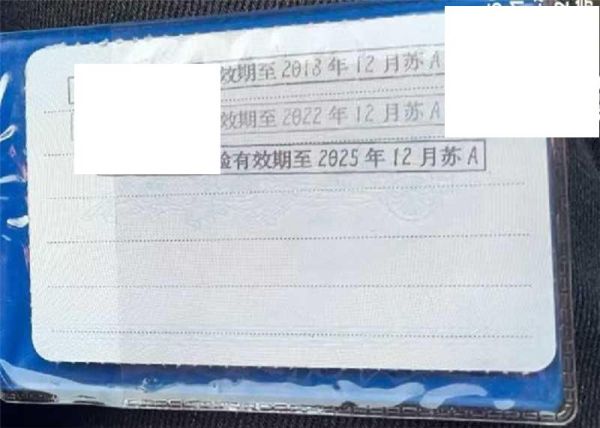 效期至2018年12月苏A
效期至2022年12月苏A
验有效期至2025年12月苏A